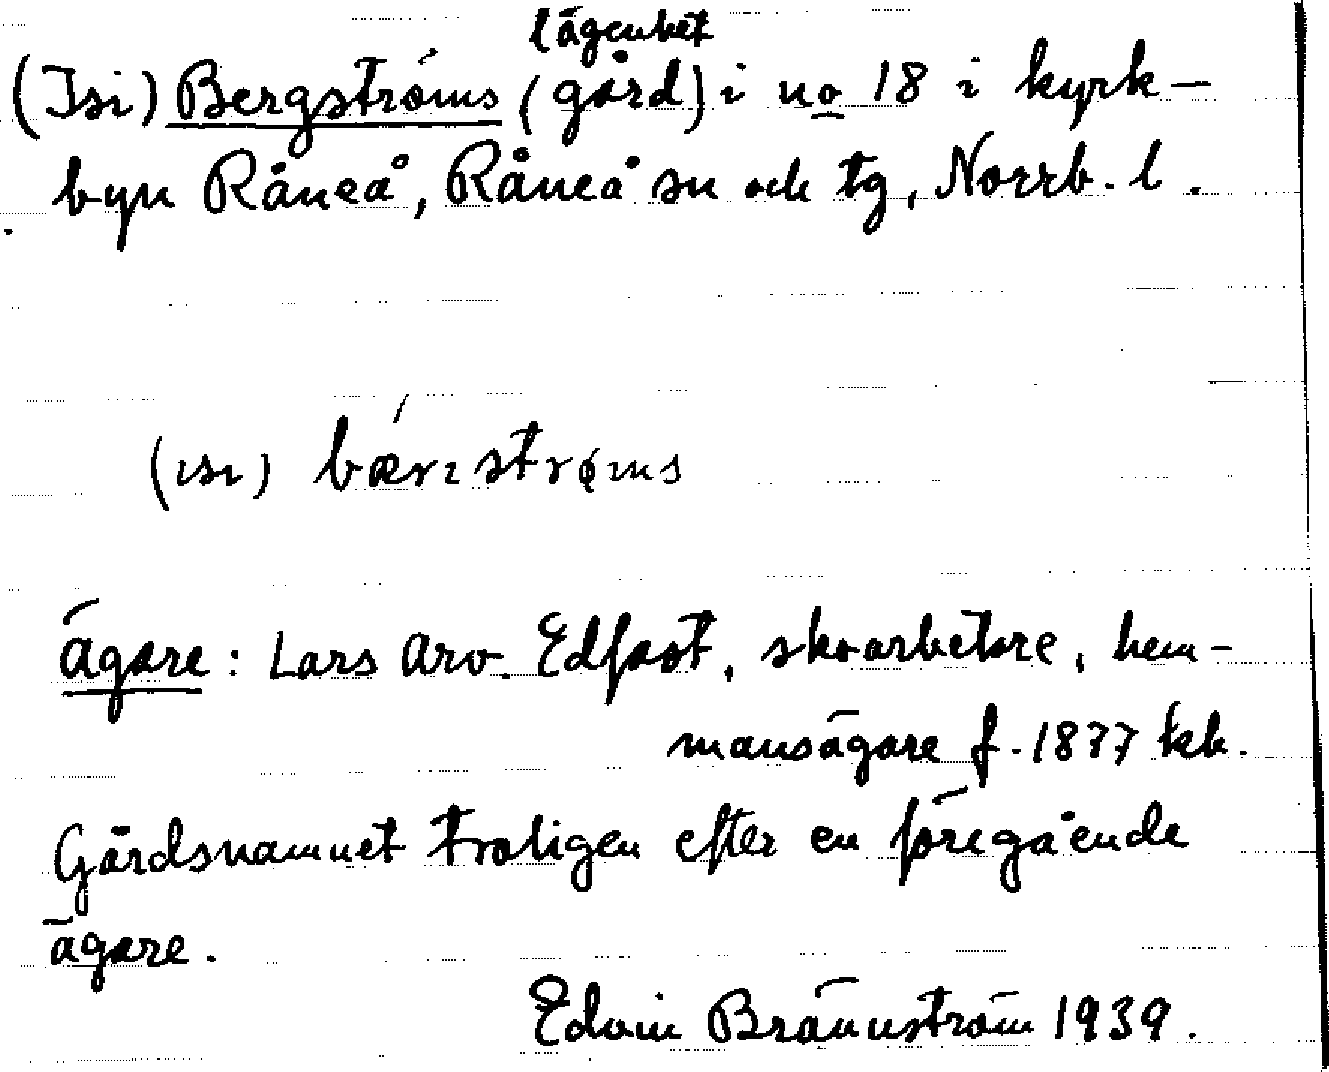 lägenhet
(Isi) Bergströms (gård) i no 18 i kyrk-
byn Råneå, Råneå sn och tg, Norrb. l.
(ısı) bærɪstrøms
ägare: Lars Arv. Edfast, skoarbetare, hem-
mansägare f. 1877 kb.
Gårdsnamnet troligen efter en föregående
ägare.
Edvin Brännström 1939.